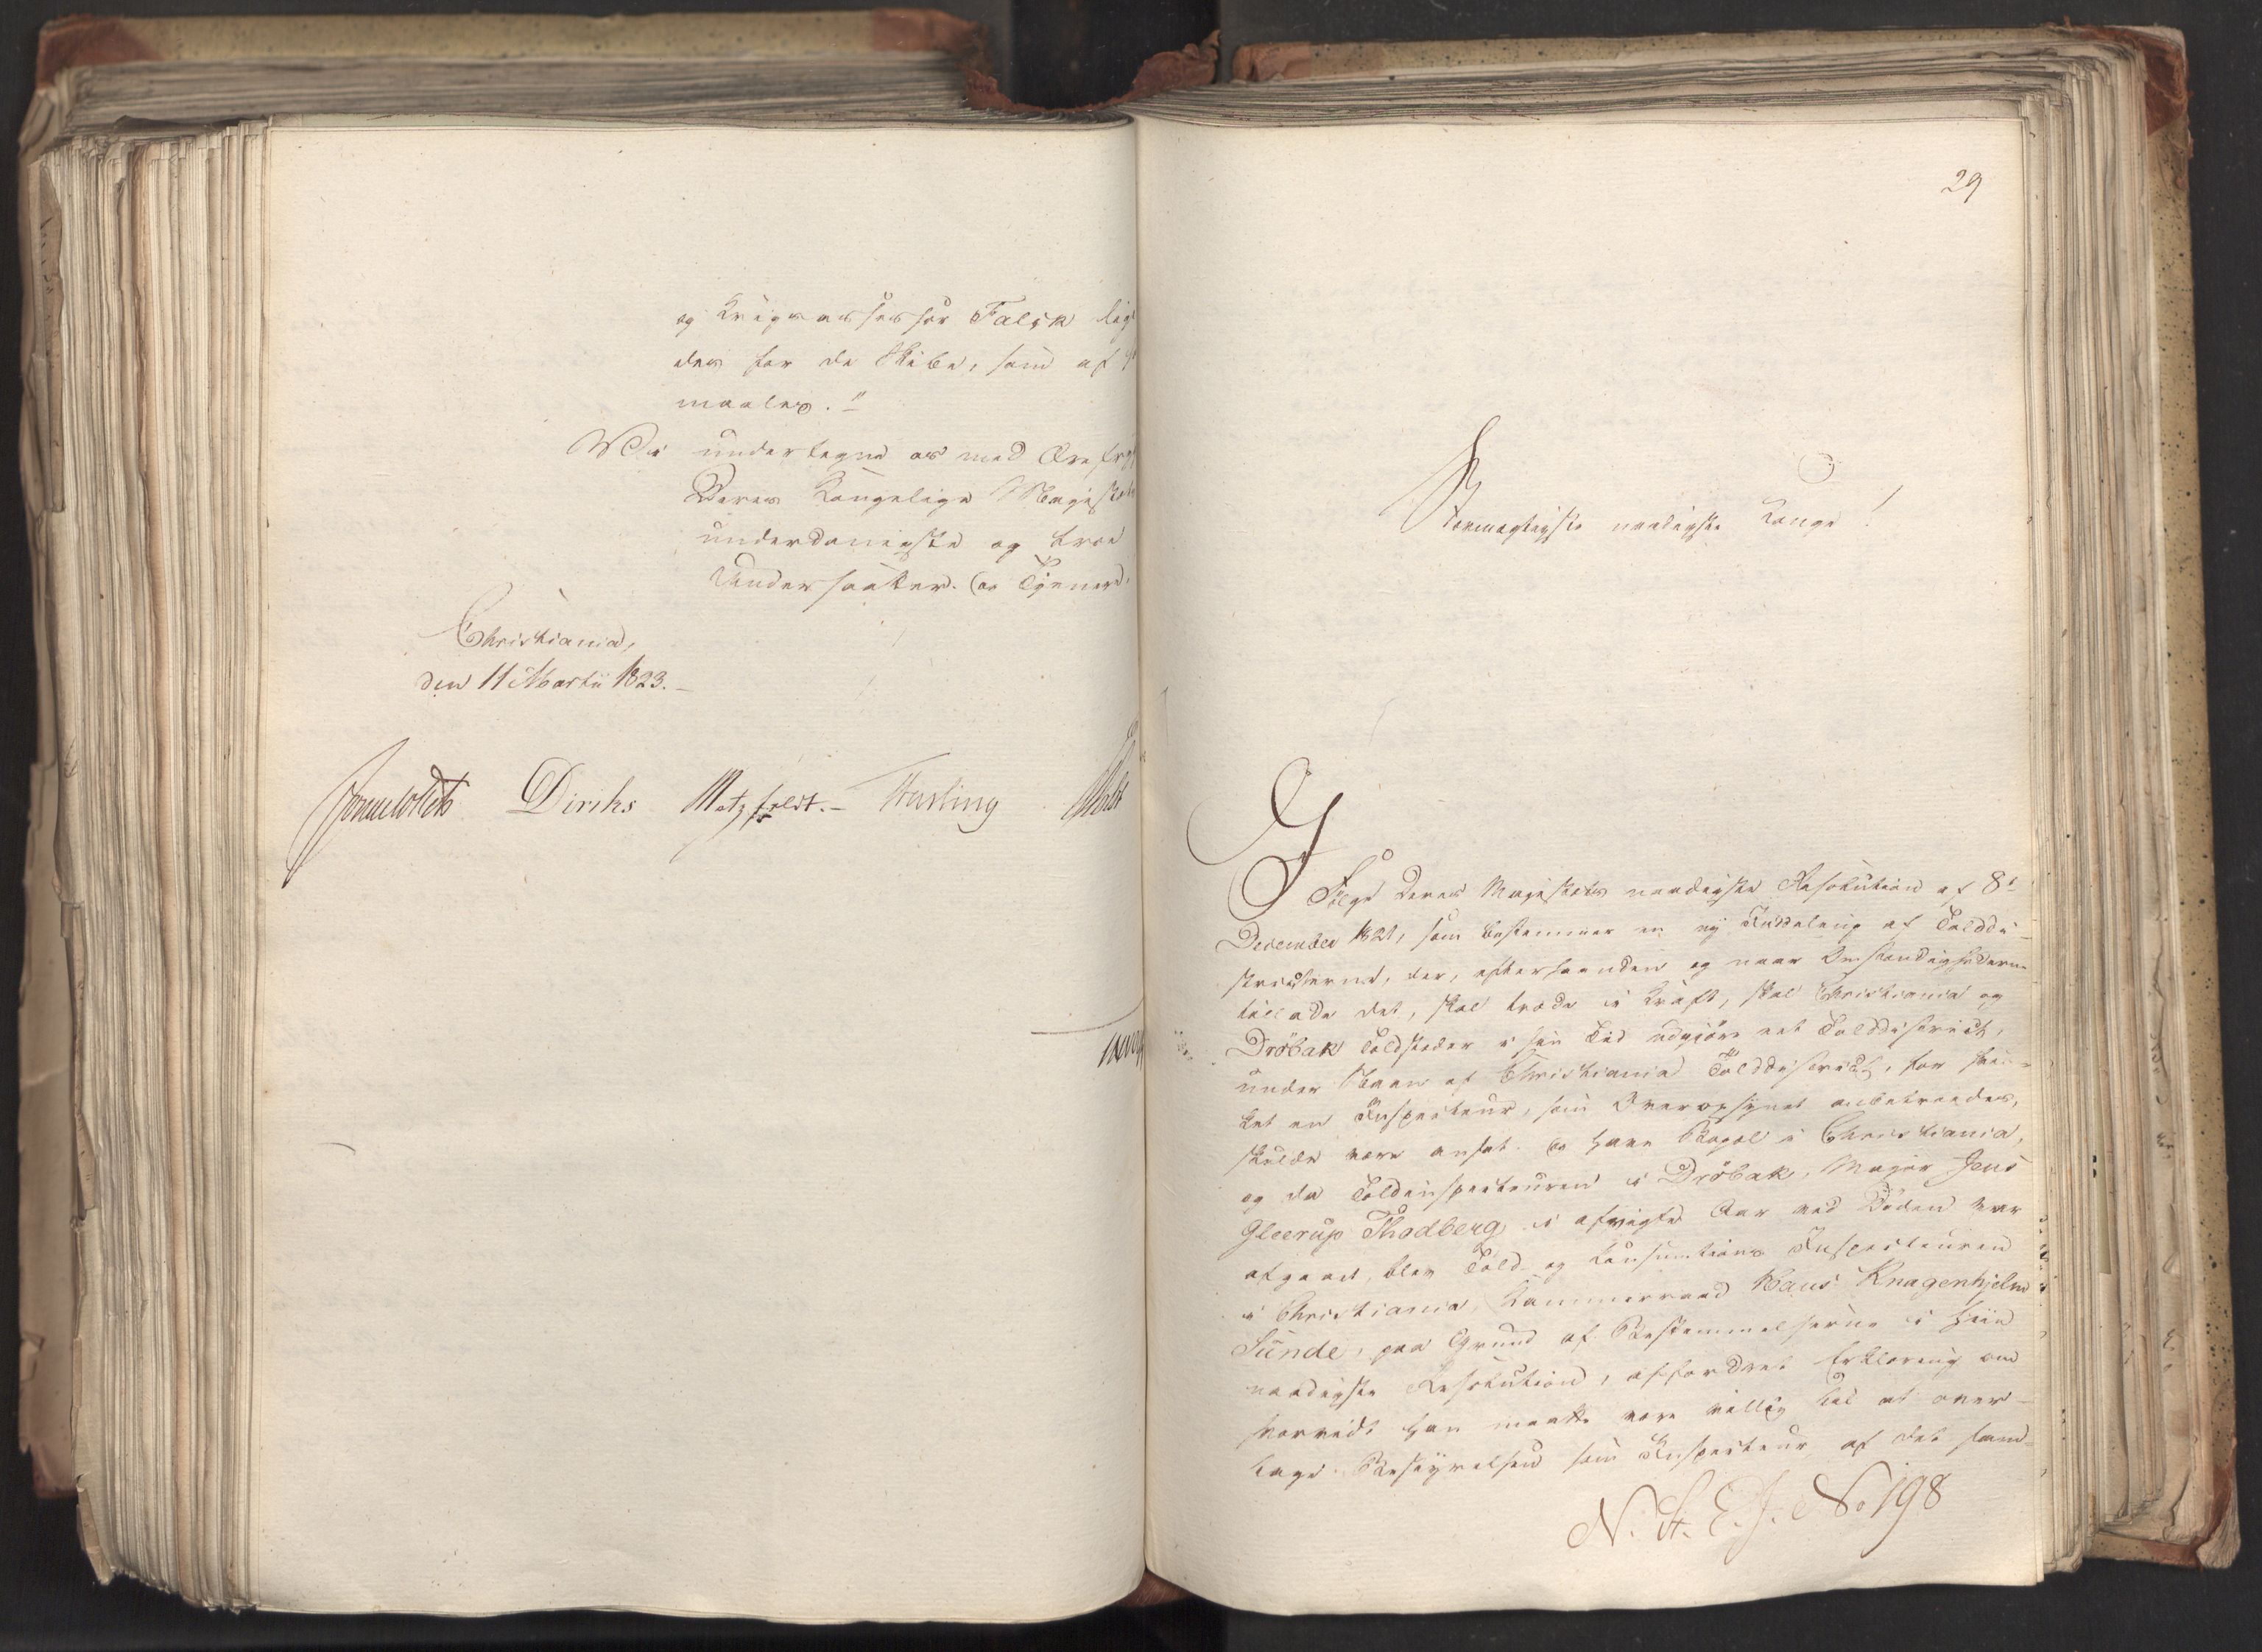 og Krigsassessor Falck
des for de Skibe, som af
maales."
Vi undertegne os med Ærefrygt
Deres Kongelige Majestæts
underdanigste og troe
Undersaatter og Tjenere.
Christiania,
den 11 Martii 1823.
Sommerhielm Diriks Motzfeldt. Fasting Holst
29
Stormægtigste naadigste Konge!
I Følge Deres Majestæts naadigste Resolution af 8de
December 1821, som bestemmer en ny Inddeling af Told di-
stricterne, der, efterhaanden og naar Omstændighederne
tillade det, skal træde i Kraft, skal Christiania og
Drøbak Toldsteder i sin Tid udgjøre eet Tolddistrict,
under Navn af Christiania Tolddistrict, for hvil-
ket en Inspecteur, som Overopsynet anbetroedes,
skulde være ansat og have Bopæl i Christiania,
og da Toldinspecteuren i Drøbak, Major Jens
Gleerup Thodberg i afvigte Aar ved Døden var
afgaaet, blev Told- og Consumtions Inspecteuren
i Christiania, Kammerraad Hans Knagenhjelm
Sunde, paa Grund af Bestemmelserne i hiin
naadigste Resolution, affordret Erklæring om
hvorvidt han maatte være villig til at over-
tage Bestyrelsen som Inspecteur af det sam-
N. St. E. J. No 198